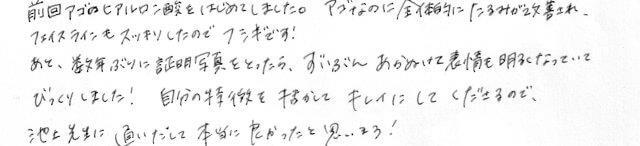 前回アゴのヒアルロン酸をはじめてしました。アゴなのに全体的にたるみが改善され、
フェイスラインもスッキリしたのでフシギです!
あと、数年ぶりに証明写真をとったら、ずいぶんあかぬけて表情も明るくなっていて
びっくりしました! 自分の特徴を活かしてキレイにしてくださるので、
池上先生に通いだして本当に良かったと思います!